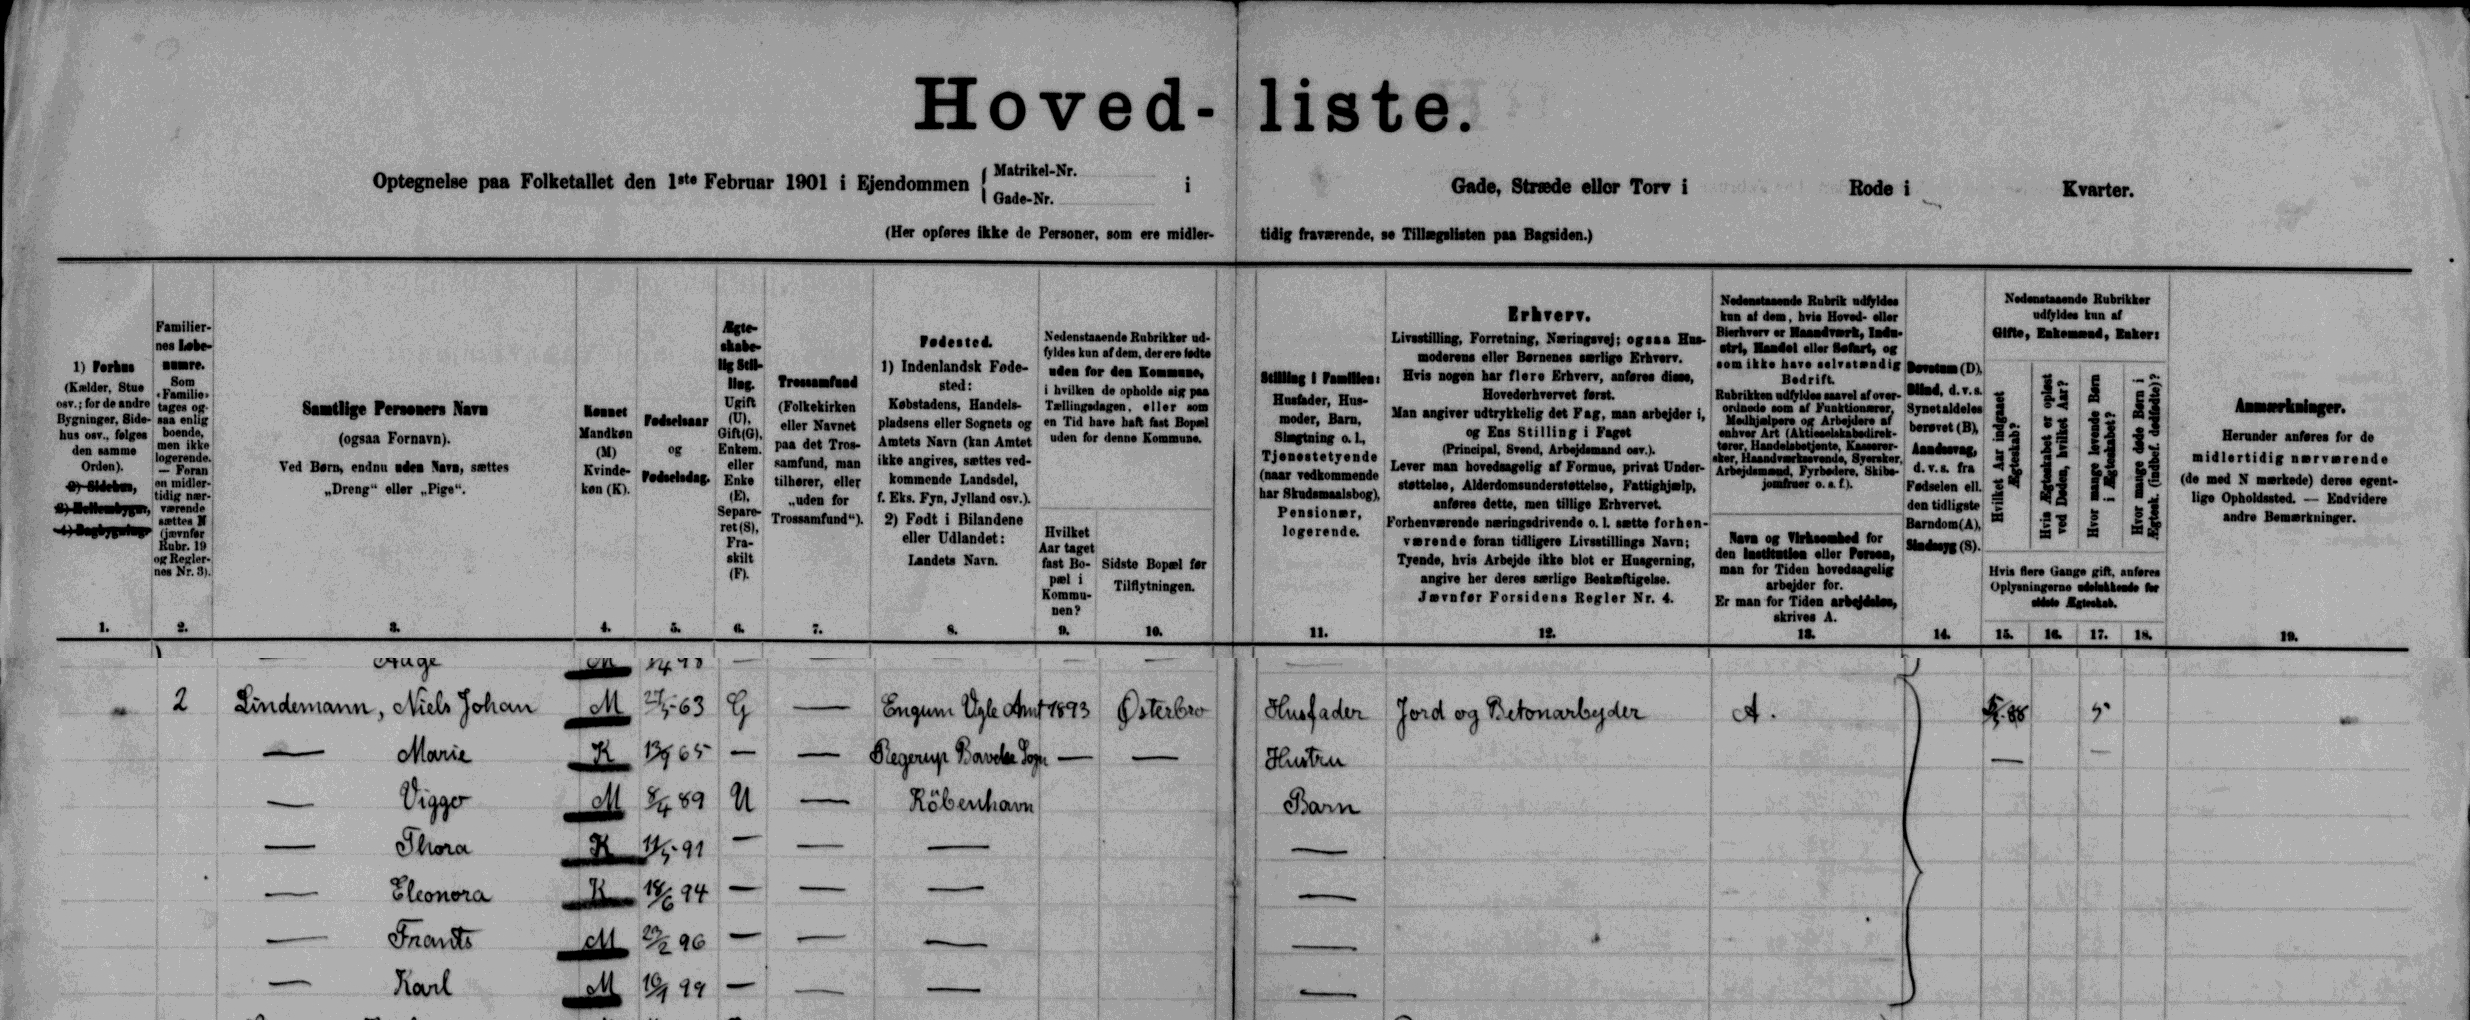 Hoved-liste.
Optegnelse paa Folketallet den 1ste Februar 1901 i Ejendommen { Matrikel-Nr. i Gade, Stræde eller Torv i Rode i Kvarter.
Gade-Nr.
(Her opføres ikke de Personer, som ere midler-tidig fraværende, se Tillægslisten paa Bagsiden.)
1) Forhus
(Kælder, Stue
osv.; for de andre
Bygninger, Side-
hus osv., følges
den samme
Orden).
2) Sidehus,
3) Mellembygn.,
4) Bagbygning.
1.
Familier-
nes Løbe-
numre.
Som
»Familie»
tages og-
saa enlig
boende,
men ikke
logerende.
— Foran
en midler-
tidig nær-
værende
sættes N
(jævnfør
Rubr. 19
og Regler-
nes Nr. 3).
2.
Samtlige Personers Navn
(ogsaa Fornavn).
Ved Børn, endnu uden Navn, sættes
„Dreng“ eller „Pige“.
3.
Kønnet
Mandkøn
(M)
Kvinde-
køn (K).
4.
Fødselsaar
og
Fødselsdag.
5.
Ægte-
skabe-
lig Stil-
ling.
Ugift
(U),
Gift(G),
Enkem.
eller
Enke
(E),
Separe-
ret (S),
Fra-
skilt
(F).
6.
Trossamfund
(Folkekirken
eller Navnet
paa det Tros-
samfund, man
tilhører, eller
„uden for
Trossamfund“).
7.
Fødested.
1) Indenlandsk Føde-
sted:
Købstadens, Handels-
pladsens eller Sognets og
Amtets Navn (kan Amtet
ikke angives, sættes ved-
kommende Landsdel,
f. Eks. Fyn, Jylland osv.).
2) Født i Bilandene
eller Udlandet:
Landets Navn.
8.
Nedenstaaende Rubrikker ud-
fyldes kun af dem, der ere fødte
uden for den Kommune,
i hvilken de opholde sig paa
Tællingsdagen, eller som
en Tid have haft fast Bopæl
uden for denne Kommune.
Hvilket
Aar taget
fast Bo-
pæl i
Kommu-
nen?
9.
Sidste Bopæl før
Tilflytningen.
10.
Stilling i Familien:
Husfader, Hus-
moder, Barn,
Slægtning o. l.,
Tjenestetyende
(naar vedkommende
har Skudsmaalsbog),
Pensionær,
logerende.
11.
Erhverv.
Livsstilling, Forretning, Næringsvej; ogsaa Hus-
moderens eller Børnenes særlige Erhverv.
Hvis nogen har flere Erhverv, anføres disse,
Hovederhvervet først.
Man angiver udtrykkelig det Fag, man arbejder i,
og Ens Stilling i Faget
(Principal, Svend, Arbejdsmand osv.).
Lever man hovedsagelig af Formue, privat Under-
støttelse, Alderdomsunderstøttelse, Fattighjælp,
anføres dette, men tillige Erhvervet.
Forhenværende næringsdrivende o. l. sætte forhen-
værende foran tidligere Livsstillings Navn;
Tyende, hvis Arbejde ikke blot er Husgerning,
angive her deres særlige Beskæftigelse.
Jævnfør Forsidens Regler Nr. 4.
12.
Nedenstaaende Rubrik udfyldes
kun af dem, hvis Hoved- eller
Bierhverv er Haandværk, Indu-
stri, Handel eller Søfart, og
som ikke have selvstændig
Bedrift.
Rubrikken udfyldes saavel af over-
ordnede som af Funktionærer,
Medhjælpere og Arbejdere af
enhver Art (Aktieselskabsdirek-
tører, Handelsbetjente, Kasserer-
sker, Haandværkssvende, Syersker,
Arbejdsmænd, Fyrbødere, Skibs-
jomfruer o. s. f.).
Navn og Virksomhed for
den Institution eller Person,
man for Tiden hovedsagelig
arbejder for.
Er man for Tiden arbejdsløs,
skrives A.
13.
Døvstum (D),
Blind, d. v. s.
Synet aldeles
berøvet (B),
Aandssvag,
d. v. s. fra
Fødselen ell.
den tidligste
Barndom(A),
Sindssyg (S).
14.
Nedenstaaende Rubrikker
udfyldes kun af
Gifte, Enkemænd, Enker:
Hvilket Aar indgaaet
Ægteskab?
Hvis Ægteskabet er opløst
ved Døden, hvilket Aar?
Hvor mange levende Børn
i Ægteskabet?
Hvor mange døde Børn i
Ægtesk. (indbef. dødfødte)?
Hvis flere Gange gift, anføres
Oplysningerne udelukkende for
sidste Ægteskab.
15. 16. 17. 18.
Anmærkninger.
Herunder anføres for de
midlertidig nærværende
(de med N mærkede) deres egent-
lige Opholdssted. — Endvidere
andre Bemærkninger.
19.
Aage M
2 Lindemann, Niels Johan M 27/5 63 G — Engum Vejle Amt 1893 Østerbro Husfader Jord og Betonarbyder A. 88 5
— Marie K 13/9 65 — — Regerup Sogn — — Hustru — —
— Viggo M 8/4 89 U — Köbenhavn Barn
— Thora K 11/5 91 — — — —
— Eleonora K 18/6 94 — — — —
— Frants M 23/2 96 — — — —
— Karl M 10/1 99 — — — —